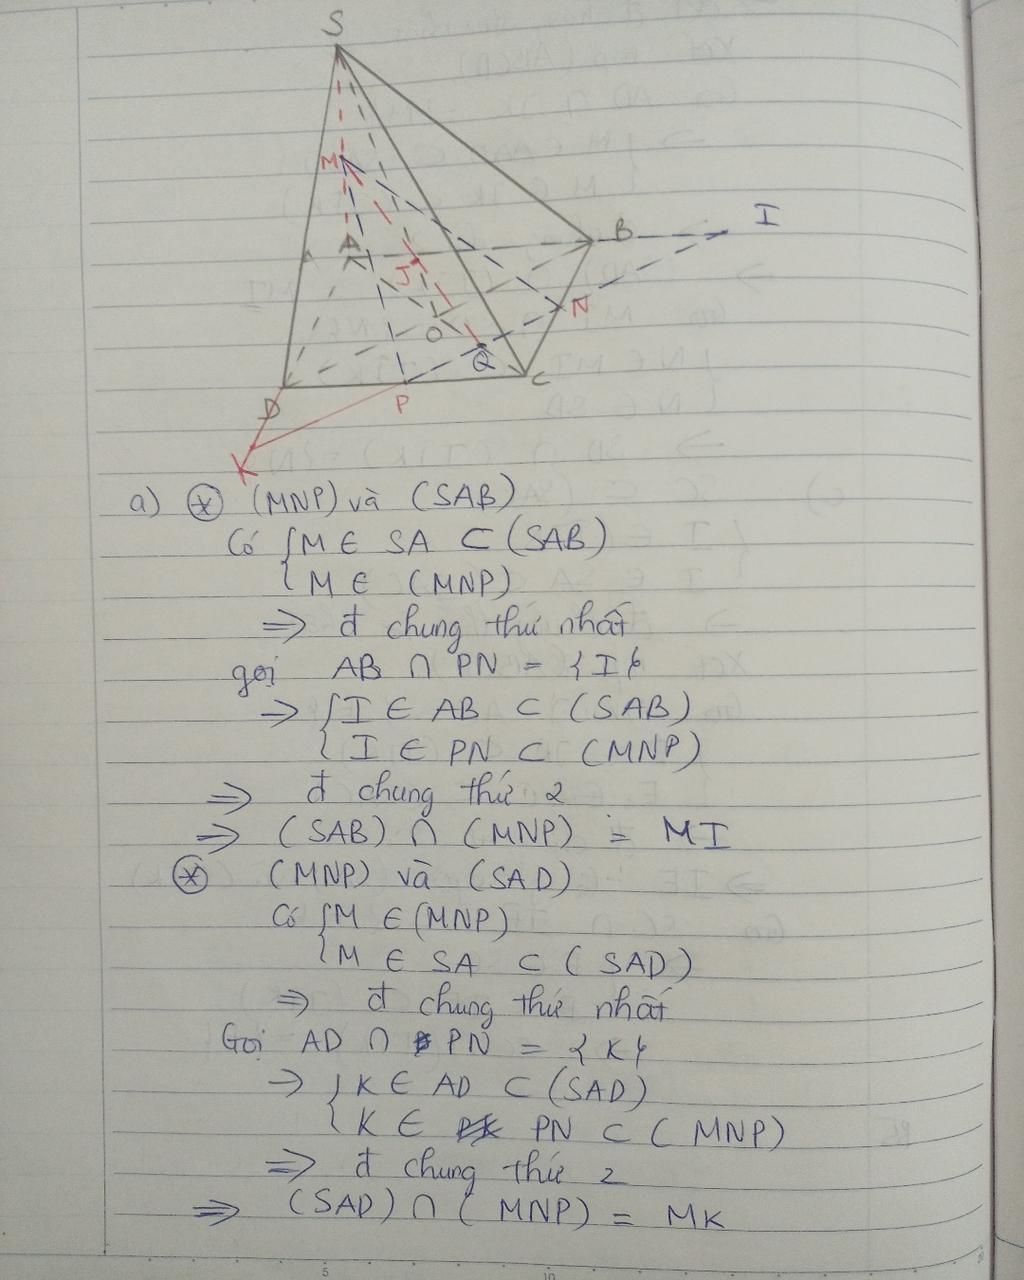 S
M
A
B
I
J
N
O
Q
D
P
C
K
a) * (MNP) và (SAB)
Có { M ∈ SA ⊂ (SAB)
{ M ∈ (MNP)
⇒ đ chung thứ nhất
gọi AB ∩ PN = {I}
⇒ { I ∈ AB ⊂ (SAB)
{ I ∈ PN ⊂ (MNP)
⇒ đ chung thứ 2
⇒ (SAB) ∩ (MNP) = MI
* (MNP) và (SAD)
Có { M ∈ (MNP)
{ M ∈ SA ⊂ (SAD)
⇒ đ chung thứ nhất
Gọi AD ∩ PN = {K}
⇒ { K ∈ AD ⊂ (SAD)
{ K ∈ PN ⊂ (MNP)
⇒ đ chung thứ 2
⇒ (SAD) ∩ (MNP) = MK
5
10